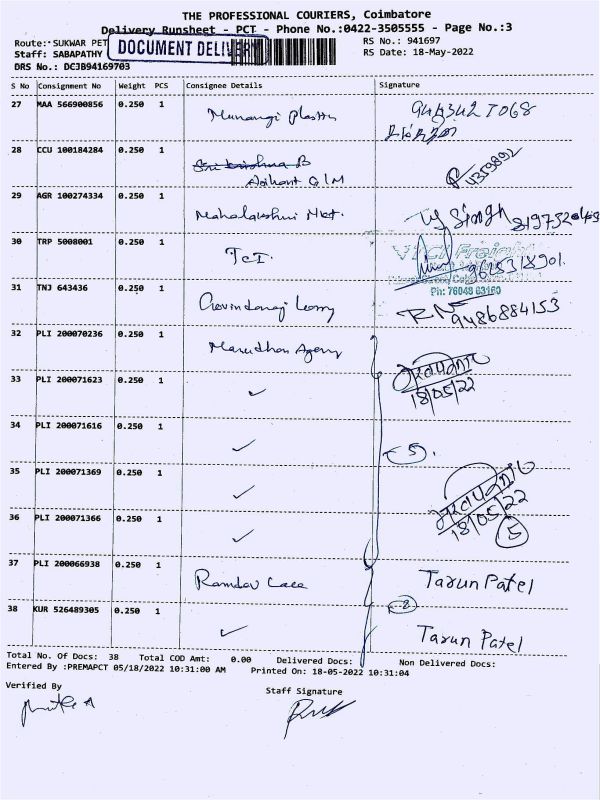 THE PROFESSIONAL COURIERS, Coimbatore
Delivery Runsheet - PCT - Phone No.:0422-3505555 - Page No.:3
Route: SUKWAR PET
DOCUMENT DELIVERY
RS No.: 941697
Staff: SABAPATHY
RS Date: 18-May-2022
DRS No.: DCJB94169703
S No Consignment No Weight PCS Consignee Details Signature
27 MAA 566900856 0.250 1 Munangi Plastis 94434 27068
28 CCU 100184284 0.250 1 Sri krishna B
Arihant G/M 4359892
29 AGR 100274334 0.250 1 Mahalakshmi Mkt. Singh
30 TRP 5008001 0.250 1 TCI.
Ph: 76048 63160
31 TNJ 643436 0.250 1 Govindaraj Lorry RN 9486884153
32 PLI 200070236 0.250 1 Marudhar Agency
33 PLI 200071623 0.250 1 ✓ 18/05/22
34 PLI 200071616 0.250 1 ✓ 5.
35 PLI 200071369 0.250 1 ✓
36 PLI 200071366 0.250 1 ✓ 18/05/22
5
37 PLI 200066938 0.250 1 Ramdev Lace Tarun Patel
2
38 KUR 526489305 0.250 1 ✓ Tarun Patel
Total No. Of Docs: 38 Total COD Amt: 0.00 Delivered Docs: Non Delivered Docs:
Entered By :PREMAPCT 05/18/2022 10:31:00 AM Printed On: 18-05-2022 10:31:04
Verified By
Staff Signature